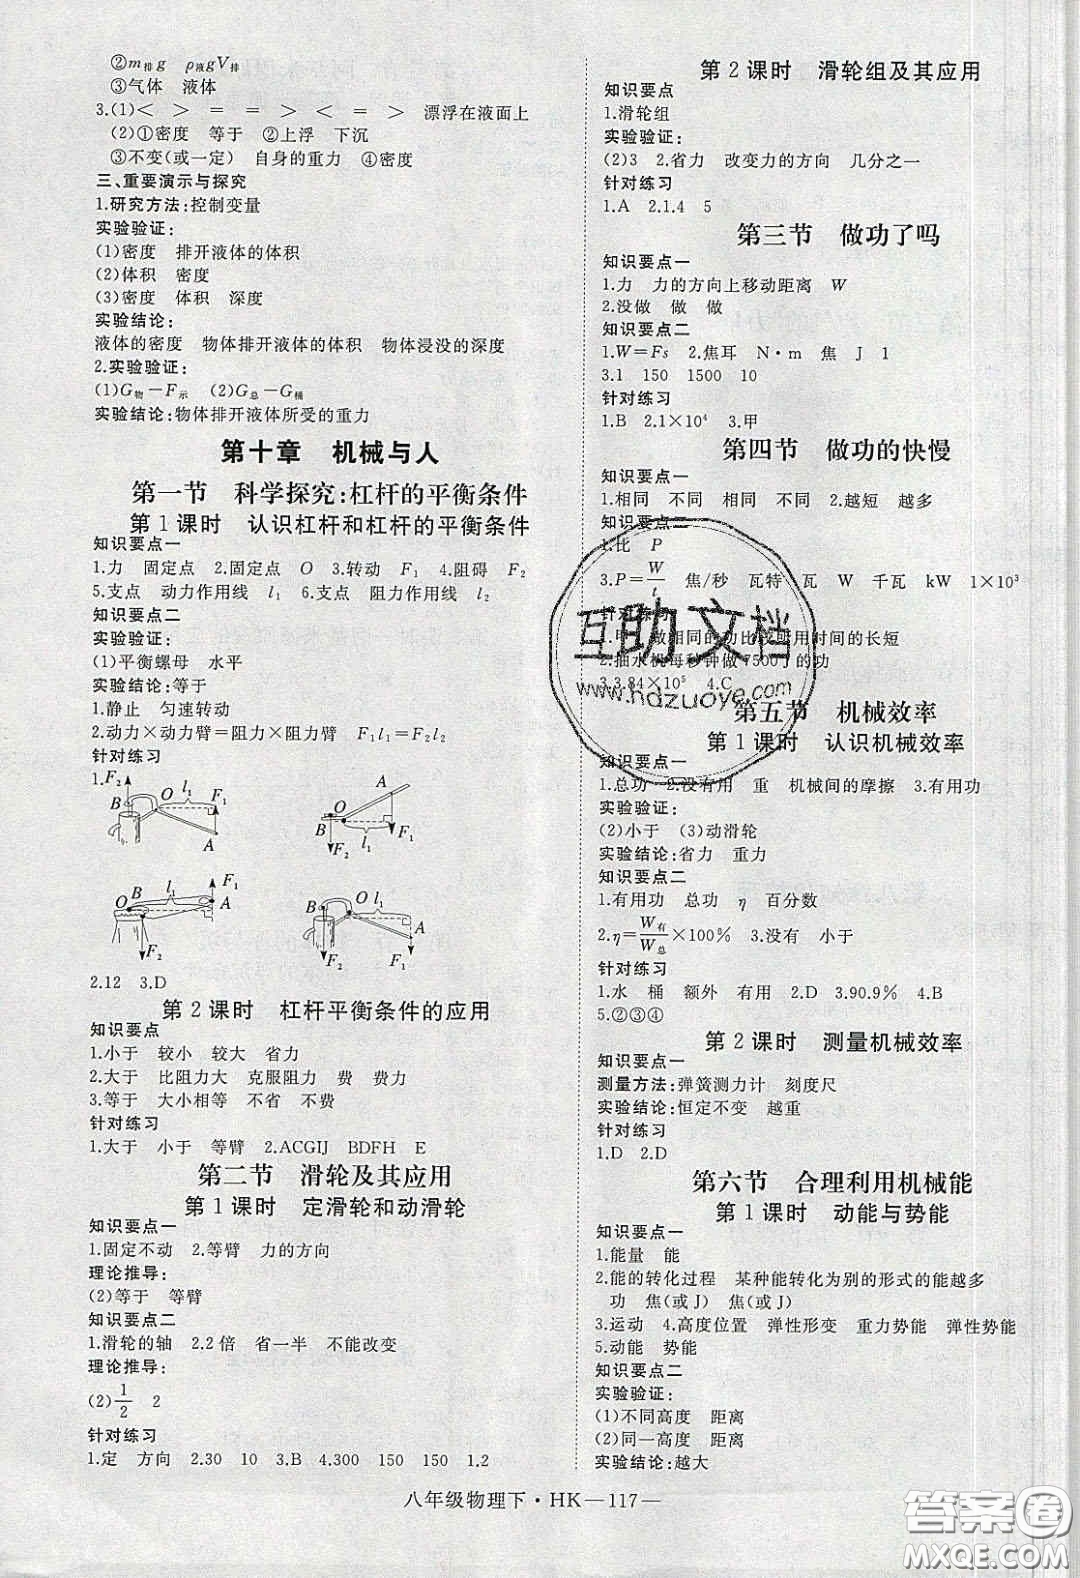 ②m排g　ρ液gV排
③气体　液体
3.(1)＜　＞　＞　＞　＜　＝　＝　＞　漂浮在液面上
(2)①密度　等于　②上浮　下沉
③不变(或一定)　自身的重力　④密度
三、重要演示与探究
1.研究方法:控制变量
实验验证:
(1)密度　排开液体的体积
(2)体积　密度
(3)密度　体积　深度
实验结论:
液体的密度　物体排开液体的体积　物体浸没的深度
2.实验验证:
(1)G物－F示　(2)G总－G桶
实验结论:物体排开液体所受的重力
第十章　机械与人
第一节　科学探究:杠杆的平衡条件
第1课时　认识杠杆和杠杆的平衡条件
知识要点一
1.力　固定点　2.固定点　O　3.转动　F₁　4.阻碍　F₂
5.支点　动力作用线　l₁　6.支点　阻力作用线　l₂
知识要点二
实验验证:
(1)平衡螺母　水平
实验结论:等于
1.静止　匀速转动
2.动力×动力臂＝阻力×阻力臂　F₁l₁＝F₂l₂
针对练习
1.
F₂ B O l₁ F₁ A
O B l₁ F₂ F₁ A
O B l₁ F₁ A F₂
F₂ B O l₁ A F₁
2.12　3.D
第2课时　杠杆平衡条件的应用
知识要点
1.小于　较小　较大　省力
2.大于　比阻力大　克服阻力　费　费力
3.等于　大小相等　不省　不费
针对练习
1.大于　小于　等臂　2.ACGIJ　BDFH　E
第二节　滑轮及其应用
第1课时　定滑轮和动滑轮
知识要点一
1.固定不动　2.等臂　力的方向
理论推导:
(2)等于　等臂
知识要点二
1.滑轮的轴　2.2倍　省一半　不能改变
理论推导:
(2)1/2　2
针对练习
1.定　方向　2.30　10　3.B　4.300　150　150　1.2
第2课时　滑轮组及其应用
知识要点
1.滑轮组
实验验证:
(2)3　2.省力　改变力的方向　几分之一
针对练习
1.A　2.1.4　5
第三节　做功了吗
知识要点一
1.力　力的方向上移动距离　W
2.没做　做　做
知识要点二
1.W＝Fs　2.焦耳　N·m　焦　J　1
3.1　150　1500　10
针对练习
1.B　2.1×10⁴　3.甲
第四节　做功的快慢
知识要点一
1.相同　不同　相同　不同　2.越短　越多
知识要点二
1.比　P
3.P＝W/t　焦/秒　瓦特　瓦　W　千瓦　kW　1×10³
针对练习
1.甲　做相同的功比较所用时间的长短
2.抽水机每秒钟做7500 J的功
3.3.84×10⁵　4.C
第五节　机械效率
第1课时　认识机械效率
知识要点一
1.总功　2.没有用　重　机械间的摩擦　3.有用功
实验验证:
(2)小于　(3)动滑轮
实验结论:省力　重力
知识要点二
1.有用功　总功　η　百分数
2.η＝W有/W总×100%　3.没有　小于
针对练习
1.水　桶　额外　有用　2.D　3.90.9%　4.B
5.②③④
第2课时　测量机械效率
知识要点一
测量方法:弹簧测力计　刻度尺
实验结论:恒定不变　越重
针对练习
1.D　2.D
第六节　合理利用机械能
第1课时　动能与势能
知识要点一
1.能量　能
2.能的转化过程　某种能转化为别的形式的能越多
功　焦(或J)　焦(或J)
3.运动　4.高度位置　弹性形变　重力势能　弹性势能
5.动能　势能
知识要点二
实验验证:
(1)不同高度　距离
(2)同一高度　距离
实验结论:越大
八年级物理下·HK—117—
互助文档
www.hdzuoye.com
答案圈
MXQE.COM